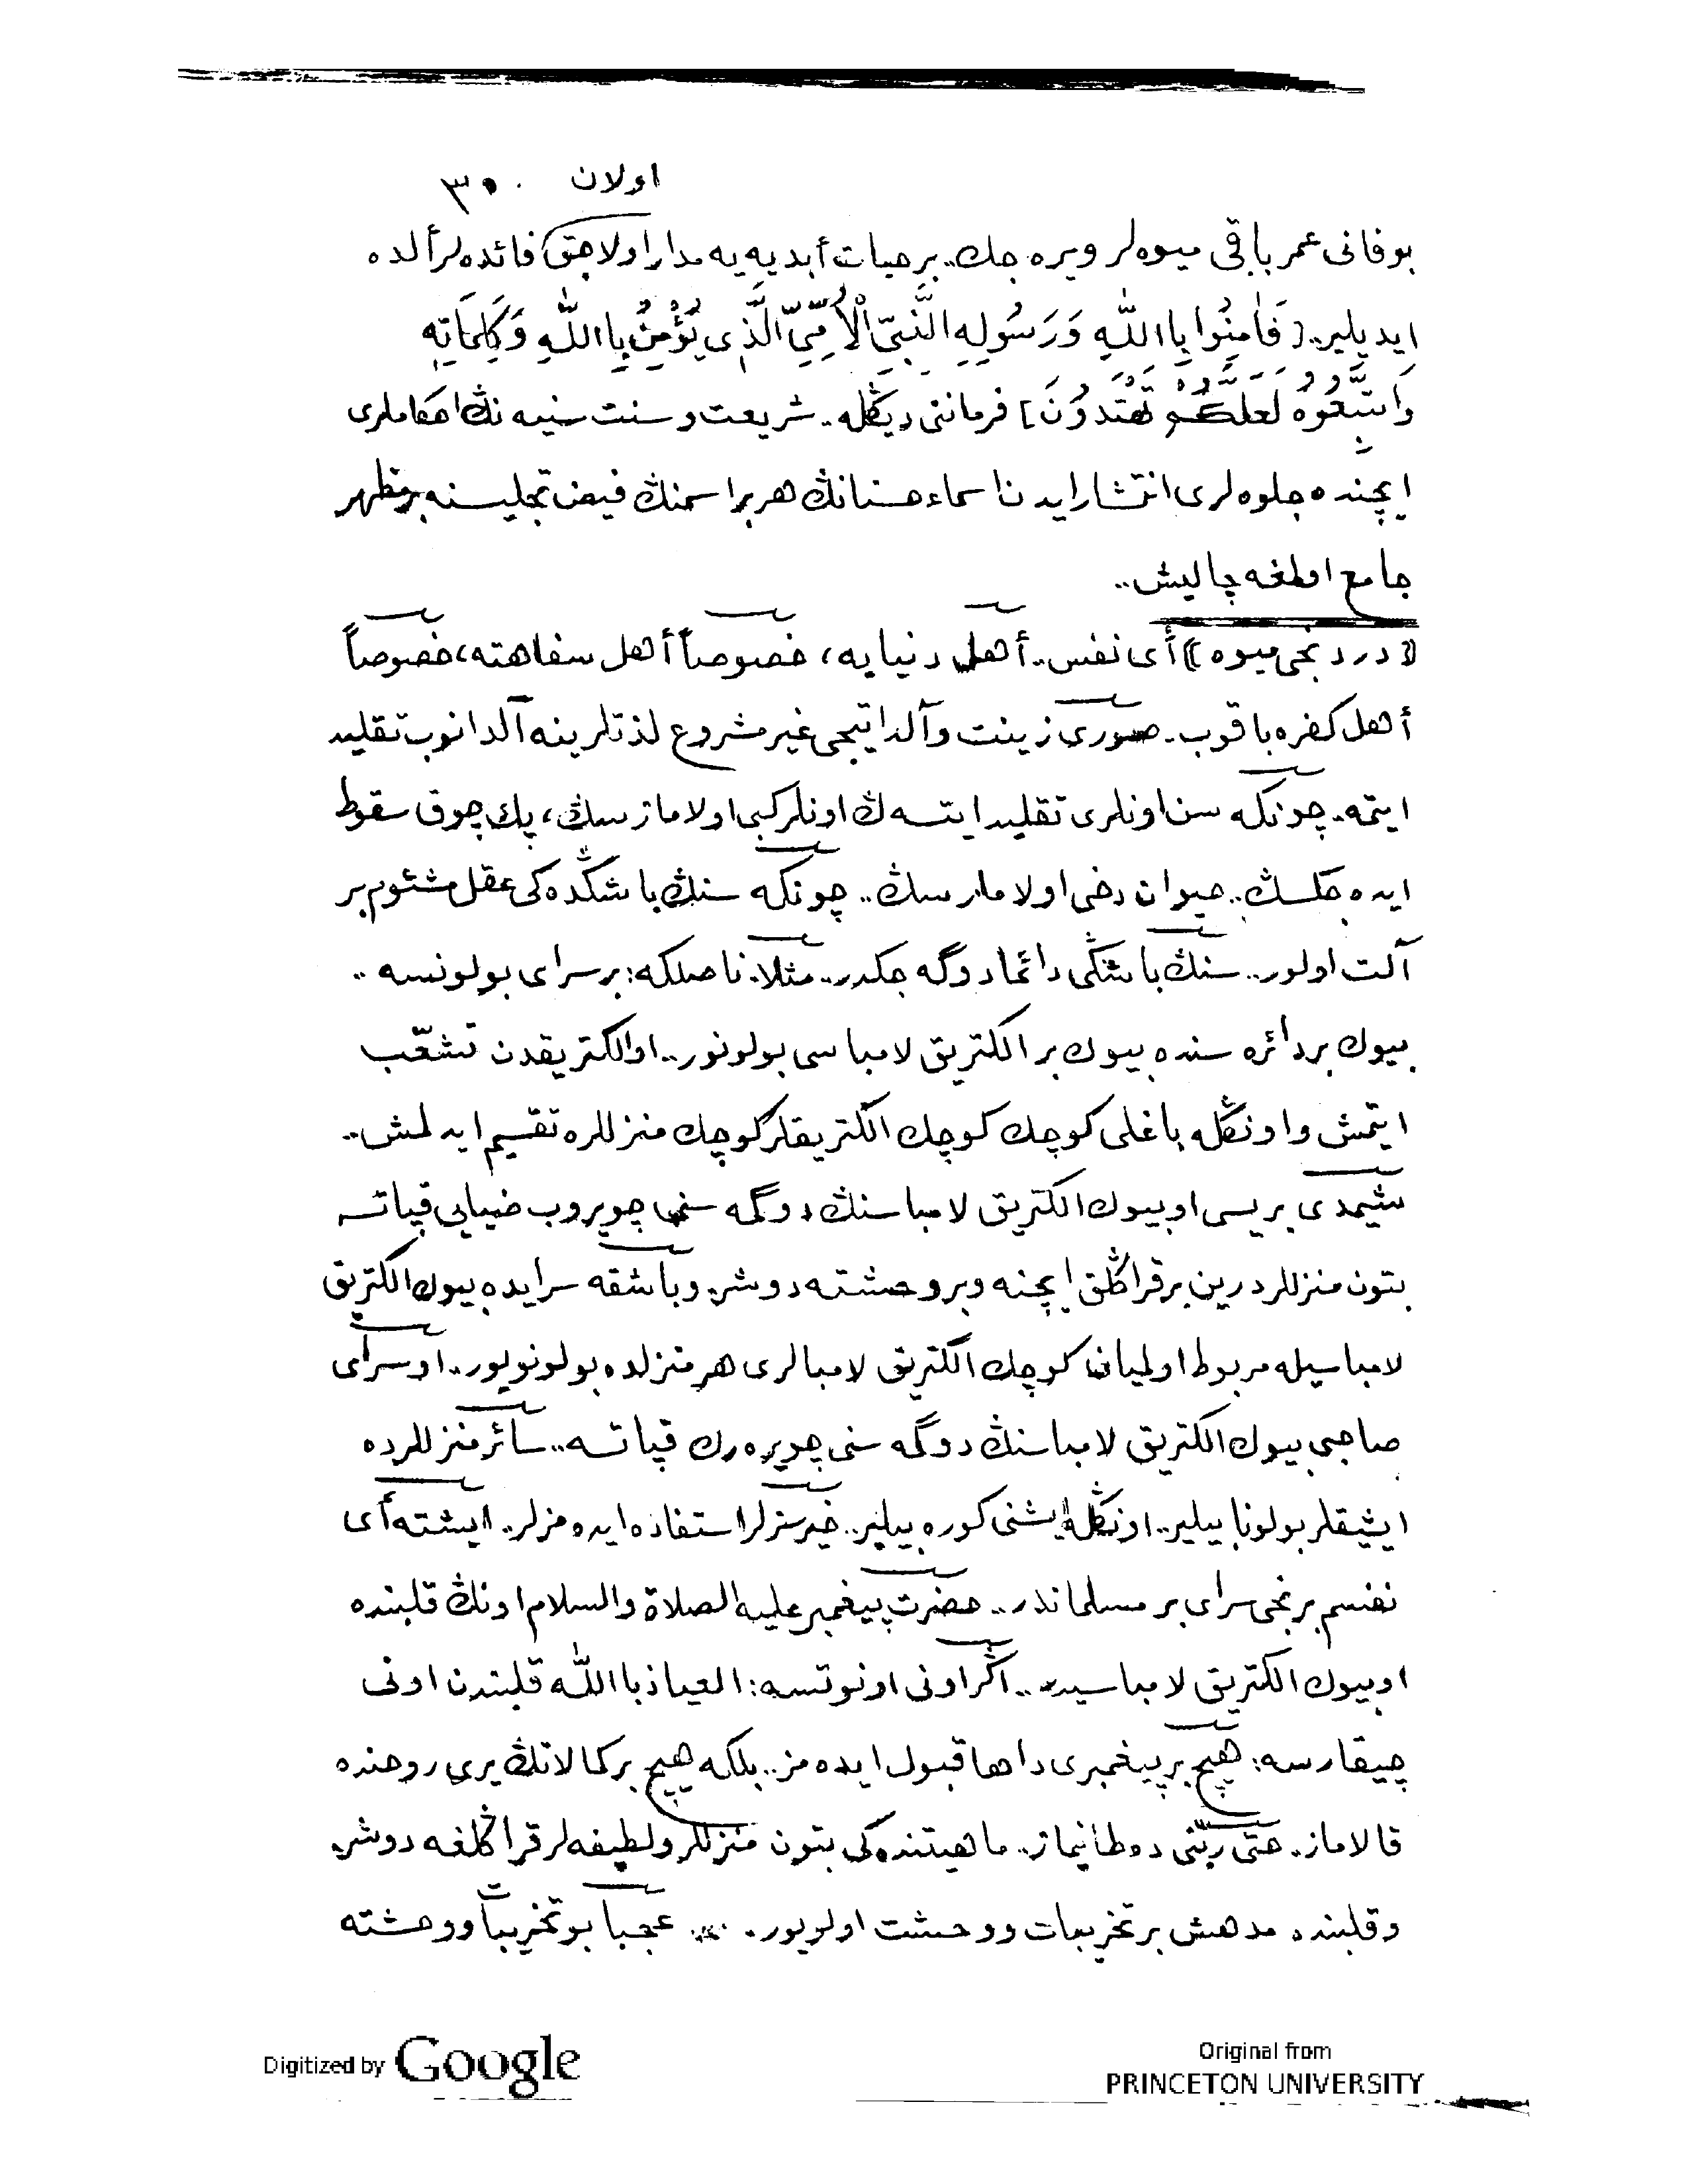 اولان ٣٥٠
بوفانی عمر باقی میوه‌لر ویره‌جك.. بر حیات أبدیه‌یه مدار اولاجق فائده‌لر ألده
ایدیلیر.. [فَاٰمِنُوا بِااللّٰهِ وَرَسُولِهِ النَّبِيِّ الْاُمِّيِّ الَّذِى يُؤْمِنُ بِااللّٰهِ وَكَلِمَاتِهِ
وَاتَّبِعُوهُ لَعَلَّكُمْ تَهْتَدُونَ] فرماننی دیڭله.. شریعت و سنت سنیه‌نڭ احكاملری
ایچنده جلوه‌لری انتشار ایدن اسماء حسنانڭ هر بر اسمنڭ فیض تجلیسنه بر مظهر
جامع اولمغه چالیش..
((دردنجی میوه)) أی نفس.. أهل دنیایه، خصوصاً أهل سفاهته، خصوصاً
أهل كفره باقوب.. صوری زینت و آلداتیجی غیر مشروع لذتلرینه آلدانوب تقلید
ایتمه.. چونكه سن اونلری تقلید ایتسه‌ڭ اونلر كبی اولامازسڭ، پك چوق سقوط
ایده‌جكسڭ.. حیوان دخی اولامازسڭ.. چونكه سنڭ باشڭده‌كی عقل مشئوم بر
آلت اولور.. سنڭ باشڭی دائما دوگه‌جكدر.. مثلا: ناصلكه: بر سرای بولونسه..
بیوك بر دائره‌سنده بیوك بر الكتریق لامباسی بولونور.. او الكتریقدن تشعّب
ایتمش و اونڭله باغلی كوچك كوچك الكتریقلر كوچك منزللره تقسیم ایدلمش..
شیمدی بریسی او بیوك الكتریق لامباسنڭ دوگمه‌سنی چویروب ضیایی قپاتسه
بتون منزللر درین بر قراڭلق ایچنه و بر وحشته دوشر. و باشقه سرایده بیوك الكتریق
لامباسیله مربوط اولمیان كوچك الكتریق لامبالری هر منزلده بولونویور.. او سرای
صاحبی بیوك الكتریق لامباسنڭ دوگمه‌سنی چویره‌رك قپاتسه.. سائر منزللرده
ایشیقلر بولونابیلیر.. اونڭله ایشنی كوره‌بیلیر.. خیرسزلر استفاده ایده‌مزلر.. ایشته أی
نفسم برنجی سرای بر مسلماندر.. حضرت پیغمبر علیه الصلاة والسلام اونڭ قلبنده
او بیوك الكتریق لامباسیدر.. اگر اونی اونوتسه: العیاذ با اللّٰه قلبندن اونی
چیقارسه: هیچ بر پیغمبری داها قبول ایده‌مز.. بلكه هیچ بر كمالاتڭ یری روحنده
قالاماز.. حتی ربّنی ده طانیماز.. ماهیتنده‌كی بتون منزللر و لطیفه‌لر قراڭلغه دوشر.
و قلبنده مدهش بر تخریبات و وحشت اولویور.. عجبا بو تخریبات و وحشته
Digitized by Google
Original from
PRINCETON UNIVERSITY